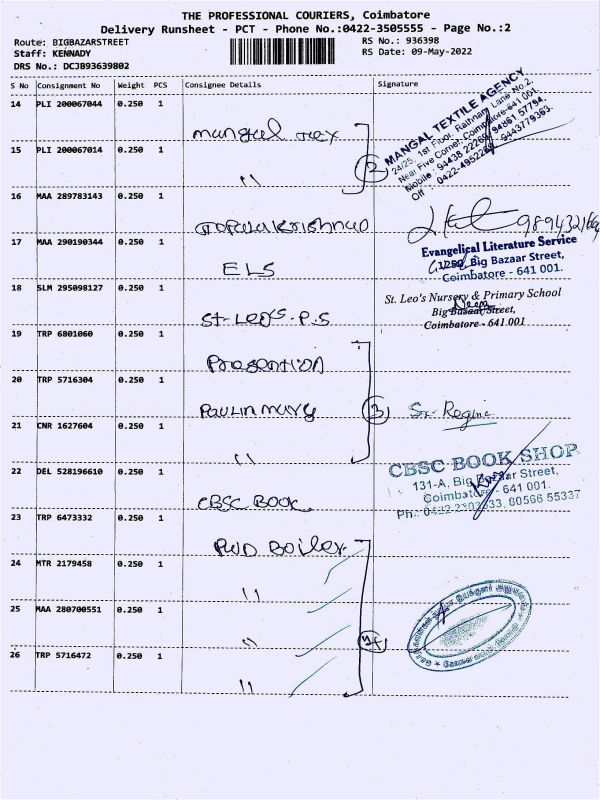 THE PROFESSIONAL COURIERS, Coimbatore
Delivery Runsheet - PCT - Phone No.:0422-3505555 - Page No.:2
Route: BIGBAZARSTREET
RS No.: 936398
Staff: KENNADY
RS Date: 09-May-2022
DRS No.: DCJB93639802
S No Consignment No Weight PCS Consignee Details Signature
14 PLI 200067044 0.250 1
15 PLI 200067014 0.250 1
"
2
MANGAL TEXTILE AGENCY
24/25, 1st Floor, Rathnam Lane No.2,
Near Five Corner, Coimbatore-641 001.
16 MAA 289783143 0.250 1
Gopalakrishnan
17 MAA 290190344 0.250 1
ELS
Evangelical Literature Service
Big Bazaar Street,
Coimbatore - 641 001.
18 SLM 295098127 0.250 1
St-Leo's-P.S
St. Leo's Nursery & Primary School
Big Bazaar Street,
Coimbatore - 641 001
19 TRP 6801060 0.250 1
Presention
20 TRP 5716304 0.250 1
Paulin Mary
3
21 CNR 1627604 0.250 1
"
22 DEL 528196610 0.250 1
CBSC BOOK
CBSC BOOK SHOP
131-A, Big Bazaar Street,
Coimbatore - 641 001.
80566 55337
23 TRP 6473332 0.250 1
PWD Boiler
24 MTR 2179458 0.250 1
"
25 MAA 280700551 0.250 1
"
4
26 TRP 5716472 0.250 1
"